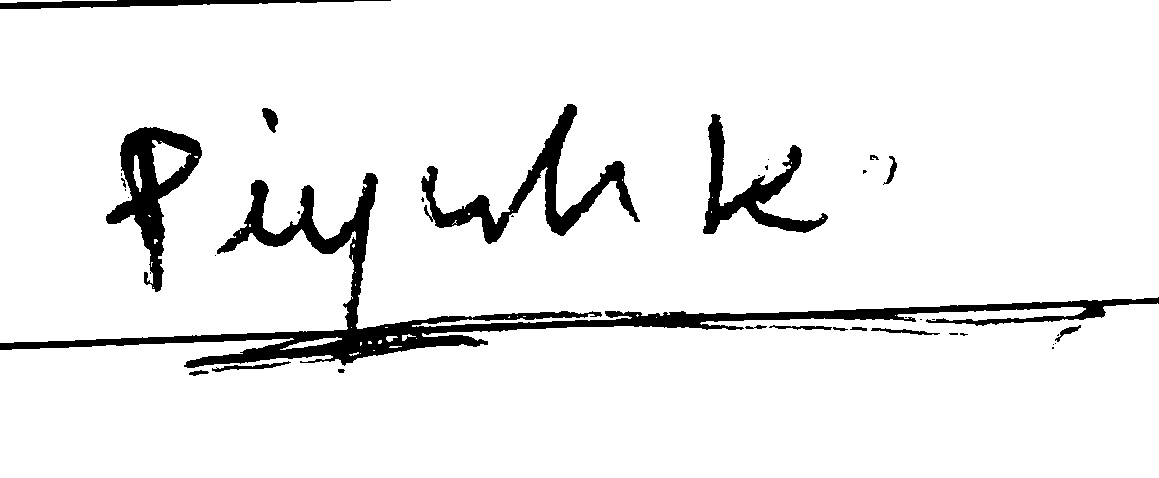 Piyush K.